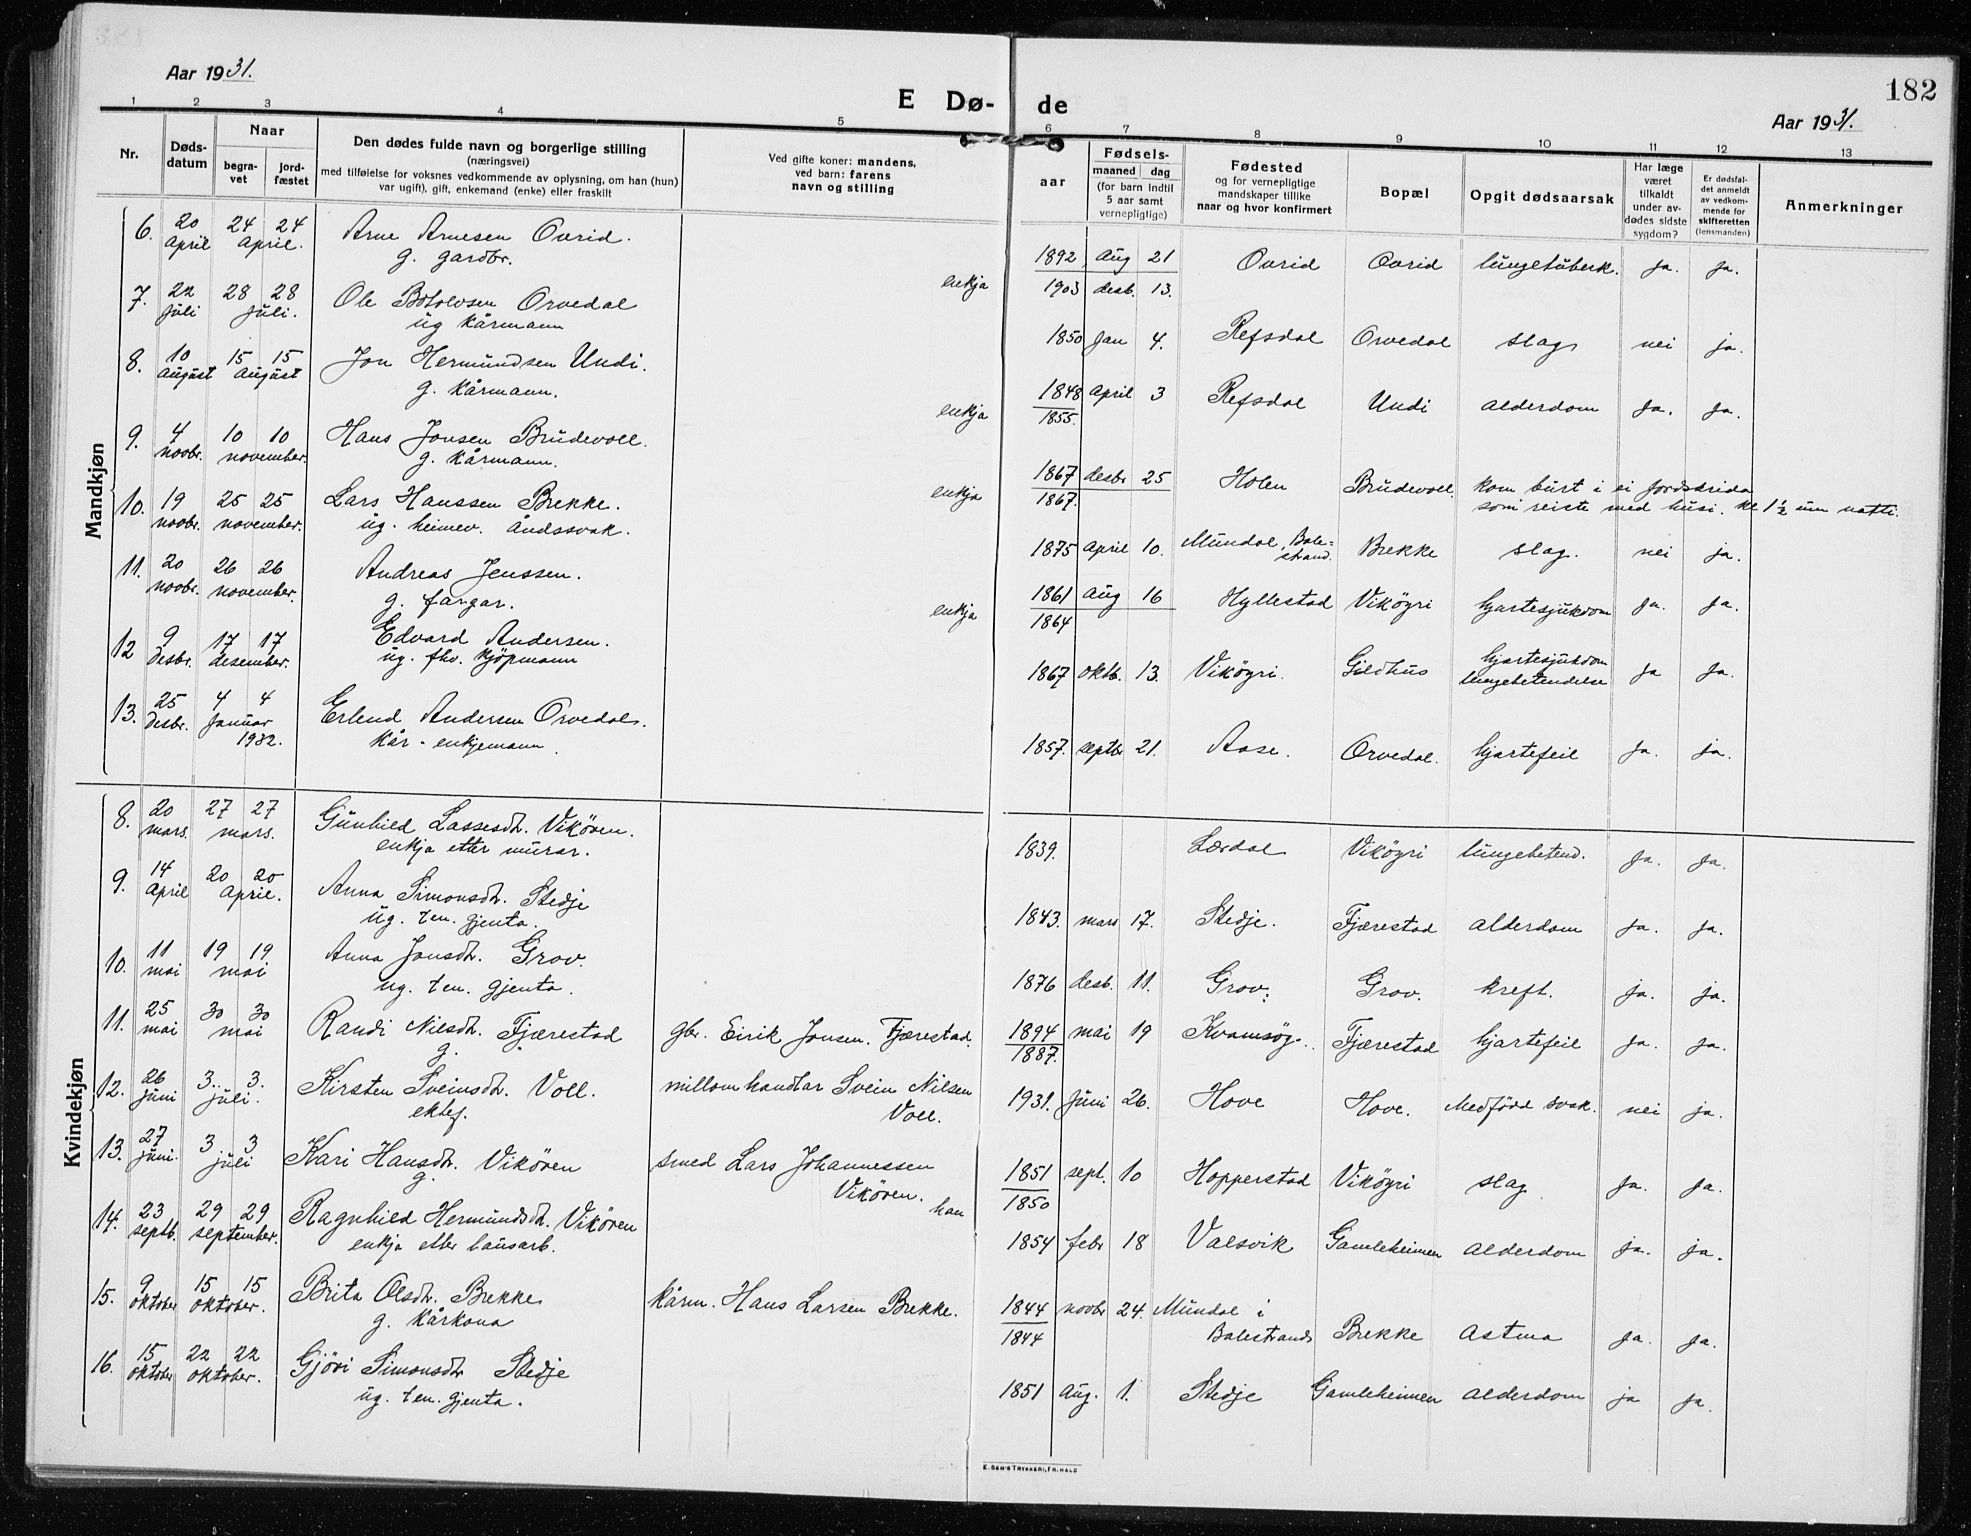 Aar 1931.
E Dø- de
182
Aar 1931.
1 2 3 4 5 6 7 8 9 10 11 12 13
Nr.
Døds-
datum
Naar
begra-
vet
jord-
fæstet
Den dødes fulde navn og borgerlige stilling
(næringsvei)
med tilføielse for voksnes vedkommende av oplysning, om han (hun)
var ugift), gift, enkemand (enke) eller fraskilt
Ved gifte koner: mandens,
ved barn: farens
navn og stilling
aar
Fødsels-
maaned dag
(for barn indtil
5 aar samt
vernepligtige)
Fødested
og for vernepligtige
mandskaper tillike
naar og hvor konfirmert
Bopæl
Opgit dødsaarsak
Har læge
været
tilkaldt
under av-
dødes sidste
sygdom?
Er dødsfal-
det anmeldt
av vedkom-
mende for
skifteretten
(lensmanden)
Anmerkninger
Mandkjøn
6. 20 24 24 Arne Arnesen Ovrid. 1892 Aug 21 Ovrid Ovrid lungetuberk. ja. ja.
April April. g. gardbr. enkja 1903 desb. 13.
7. 22 28 28 Ole Botolvsen Orvedal 1850 Jan 4. Refsdal Orvedal slag nei ja.
juli juli. ug kårmann
8. 10 15 15 Jon Hermundsen Undi. 1848 april 3 Refsdal Undi alderdom ja. ja.
August August g. kårmann. enkja 1855.
9. 4 10 10 Hans Jonsen Brudevoll. 1867 desbr 25 Holen Brudevoll kom burt i ei jordskrida
novbr. november. g. kårmann. enkja 1867. som reiste med husi. kl 1½ um natti.
10. 19 25 25 Lars Hanssen Brekke. 1875 april 10. Mundal, Bale=
strand. Brekke slag. nei ja.
novbr. november. ug. heimev. åndssvak.
11. 20 26 26 Andreas Jenssen. 1861 Aug 16 Hyllestad Vikøyri hjartesjukdom ja. ja.
novbr. november. g. fargar. enkja 1864
12 9 17 17 Edvard Andersen. 1867 oktb. 13. Vikøyri. Gildhus hjartesjukdom
lungebetendelse ja ja.
desbr. desember. ug. fhv. kjøpmann
13. 25 4 4 Erlend Andersen Orvedal. 1857. septbr 21. Aase. Orvedal. hjartefeil ja. ja.
desbr. Januar kår - enkjemann.
1932.
Kvindekjøn
8. 20 27 27 Gunhild Lassesdtr. Vikøren. 1839. Lærdal Vikøyri lungebetend. ja. ja.
mars. mars. enkja etter murar.
9. 14 20 20 Anna Simonsdtr. Stedje 1843. mars 17. Stedje. Fjærestad alderdom ja. ja.
April April. ug. ten. gjenta.
10. 11 19 19. Anna Jonsdtr. Grov. 1876 desb. 11. Grov. Grov. kreft. ja. ja.
mai mai ug. ten. gjenta.
11. 25 30 30 Randi Nilsdtr. Fjærestad gbr. Eirik Jonsen. Fjærestad. 1894 mai 19 Kvamsøy. Fjærestad hjartefeil ja. ja.
mai mai g. 1887.
12. 26 3. 3. Kirsten Sveinsdtr. Voll. millomhandlar Svein Nilsen 1931. juni 26. Hove Hove. Medfødd svak. nei ja.
juni juli. ektef. Voll.
13. 27 3 3 Kari Hansdtr. Vikøren smed Lars Johannessen 1851 sept. 10 Hopperstad Vikøyri slag ja. ja.
juni. juli g. Vikøren. han 1850
14. 23 29 29 Ragnhild Hermundsdt. Vikøren 1854 febr 18 Valsvik Gamleheimen alderdom ja. ja.
septb. september. enkja etter lausarb.
15. 9 15 15 Brita Olsdtr. Brekke kårm. Hans Larsen Brekke. 1844 novbr 24. Mundal i
Balestrand Brekke astma ja. ja.
oktober oktober. g. kårkona 1844
16. 15 22 22 Gjøri Simonsdtr Stedje 1851 Aug. 1. Stedje Gamleheimen alderdom ja ja.
oktober oktober. ug. ten. gjenta.
E. SEM'S TRYKKERI, FR.HALD